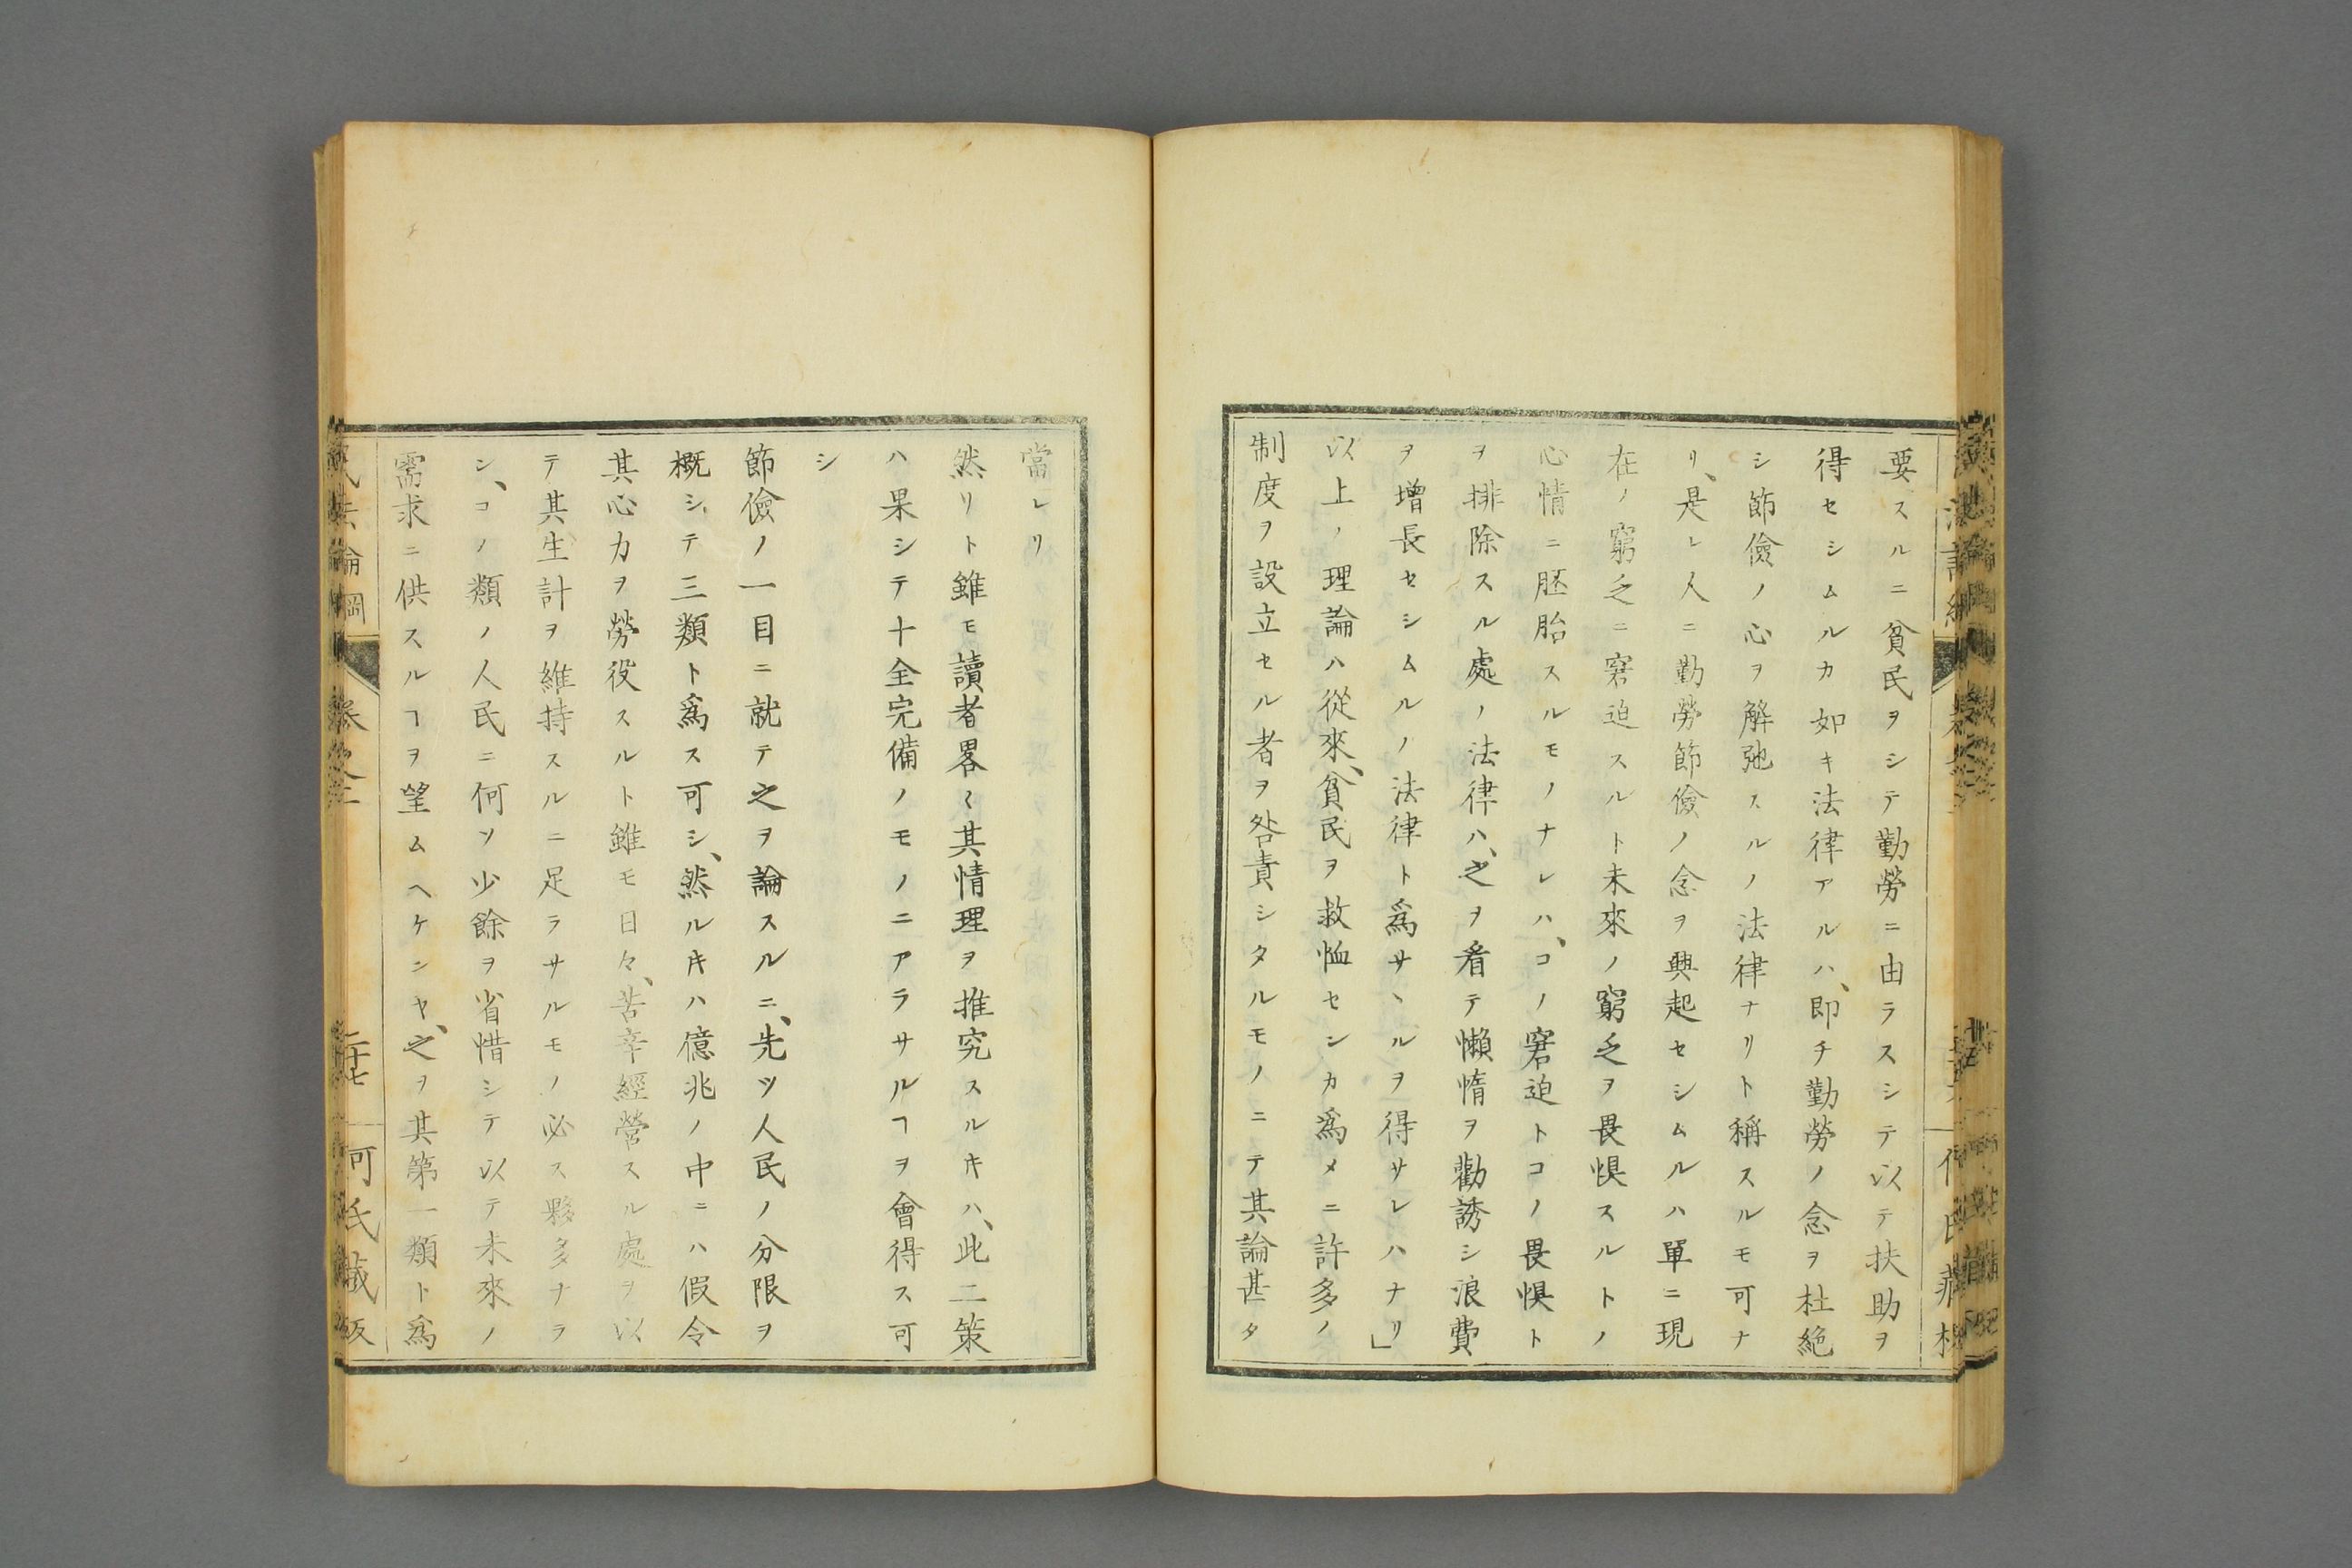 要スルニ貧民ヲシテ勤勞ニ由ラスシテ以テ扶助ヲ
得セシムルカ如キ法律アルハ、即チ勤勞ノ念ヲ杜絶
シ節儉ノ心ヲ解弛スルノ法律ナリト稱スルモ可ナ
リ、是レ人ニ勤勞節儉ノ念ヲ興起セシムルハ單ニ現
在ノ窮乏ニ窘迫スルト未來ノ窮乏ヲ畏惧スルトノ
心情ニ胚胎スルモノナレハ、コノ窘迫トコノ畏惧ト
ヲ排除スル處ノ法律ハ、之ヲ看テ懶惰ヲ勸誘シ浪費
ヲ增長セシムルノ法律ト爲サヽルヲ得サレハナリ」
以上ノ理論ハ從來、貧民ヲ救恤センカ爲メニ許多ノ
制度ヲ設立セル者ヲ咎責シタルモノニテ其論甚タ
當レリ
然リト雖モ讀者畧〻其情理ヲ推究スルキハ、此二策
ハ果シテ十全完備ノモノニアラサルヿヲ會得ス可
シ
節儉ノ一目ニ就テ之ヲ論スルニ、先ツ人民ノ分限ヲ
概シテ三類ト爲ス可シ、然ルキハ億兆ノ中ニハ假令
其心力ヲ勞役スルト雖モ日々、苦辛經營スル處ヲ以
テ其生計ヲ維持スルニ足ラサルモノ必ス夥多ナラ
ン、コノ類ノ人民ニ何ソ少餘ヲ省惜シテ以テ未來ノ
需求ニ供スルヿヲ望ムヘケンヤ、之ヲ其第一類ト爲
法論綱
卷之三
二十七
何氏藏版